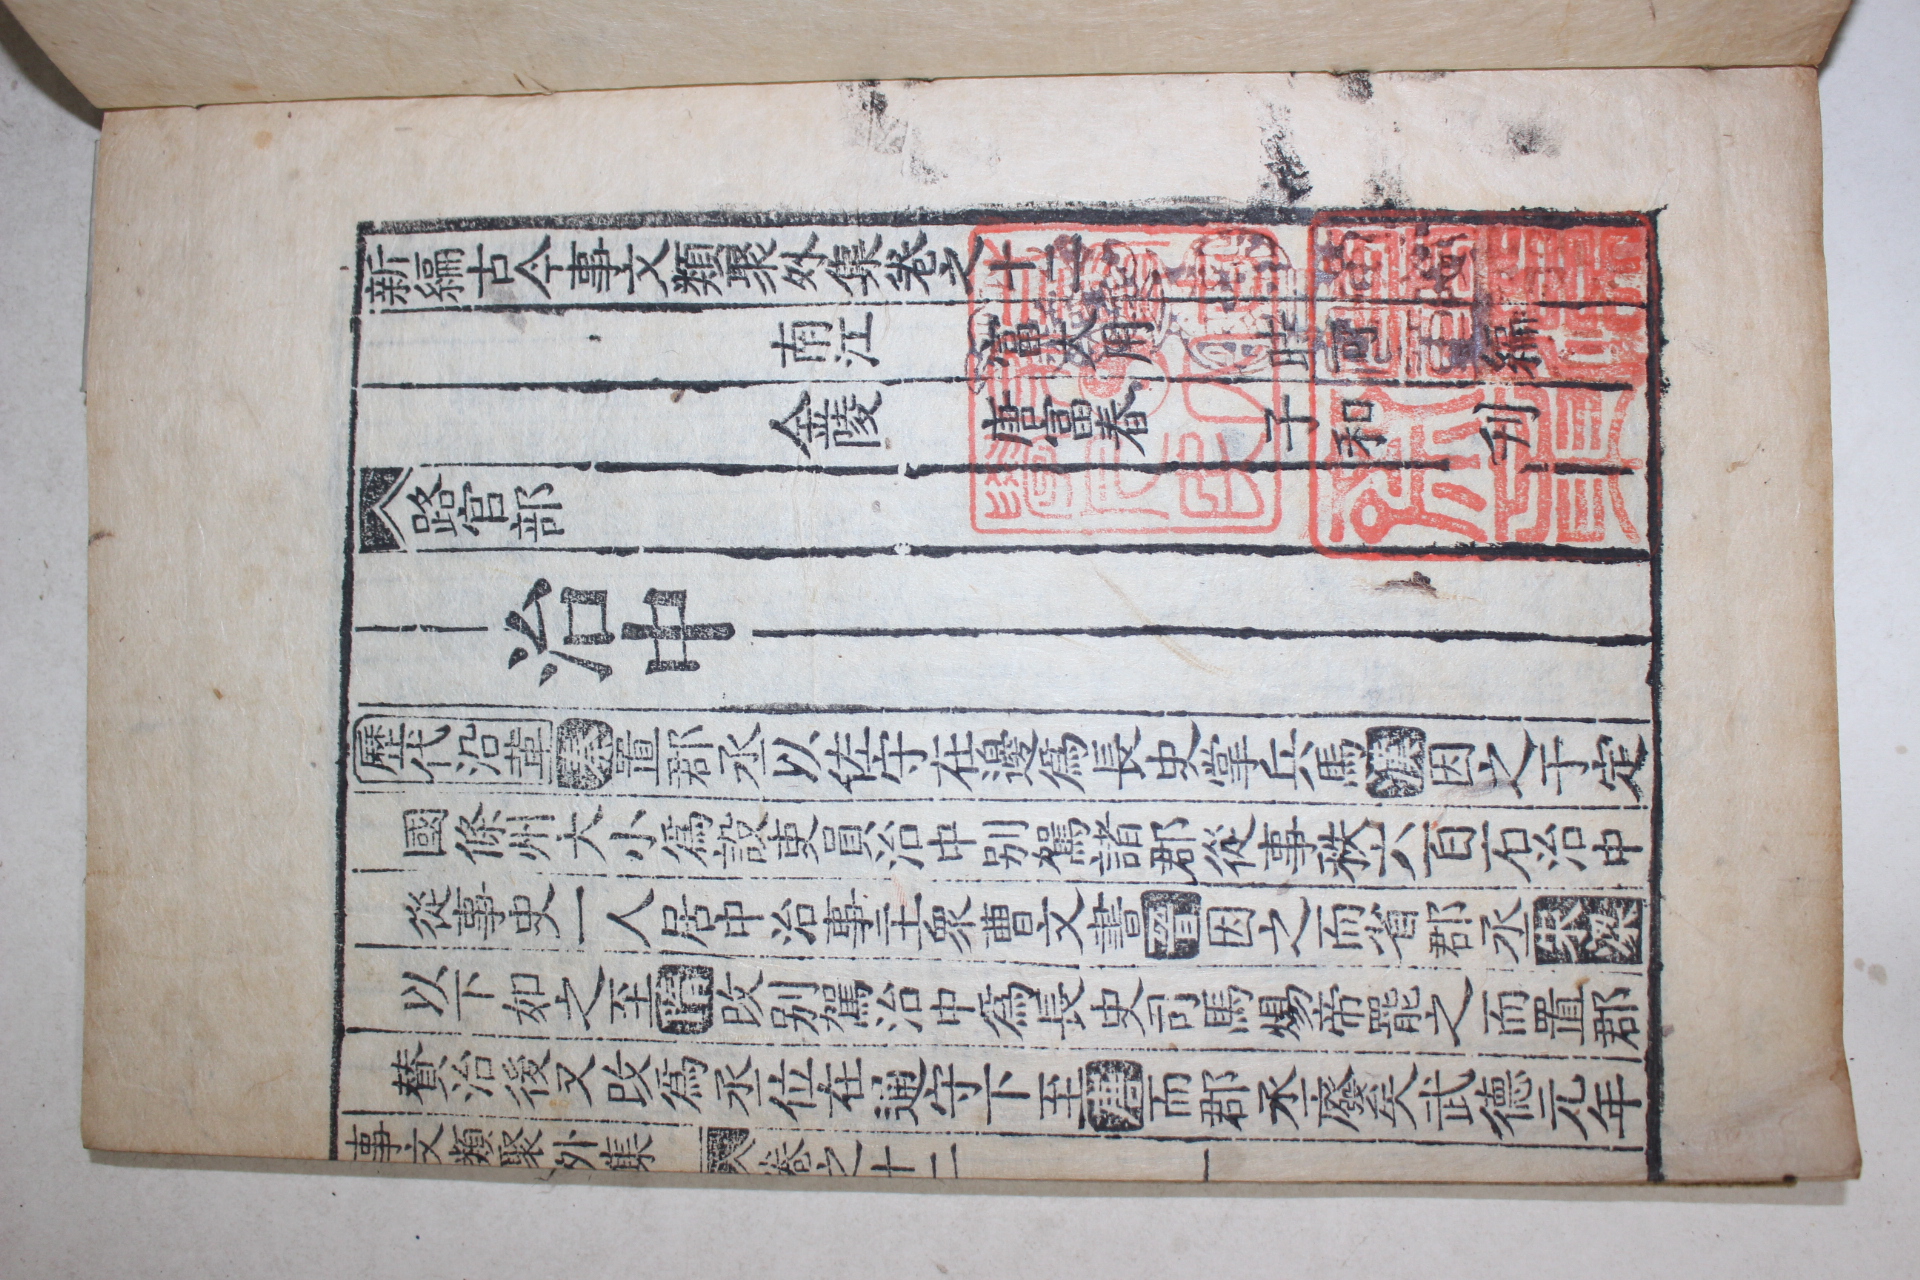 新編古今事文類聚外集卷之十二
南江 富大用 時可 編
金陵 唐富春 子和 刋
路官部
治中
歷代沿革秦置郡丞以佐守在邊爲長史掌兵馬漢因之于定
國條州大小爲設吏員治中別駕諸郡從事秩六百石治中
從事史一人居中治事主衆曹文書晉因之而省郡丞
以下如之至隋改別駕治中爲長史司馬煬帝罷之而置郡
贊治後又改爲丞位在通守下至唐而郡丞廢矣武德元年
事文類聚外集 卷之十二 一